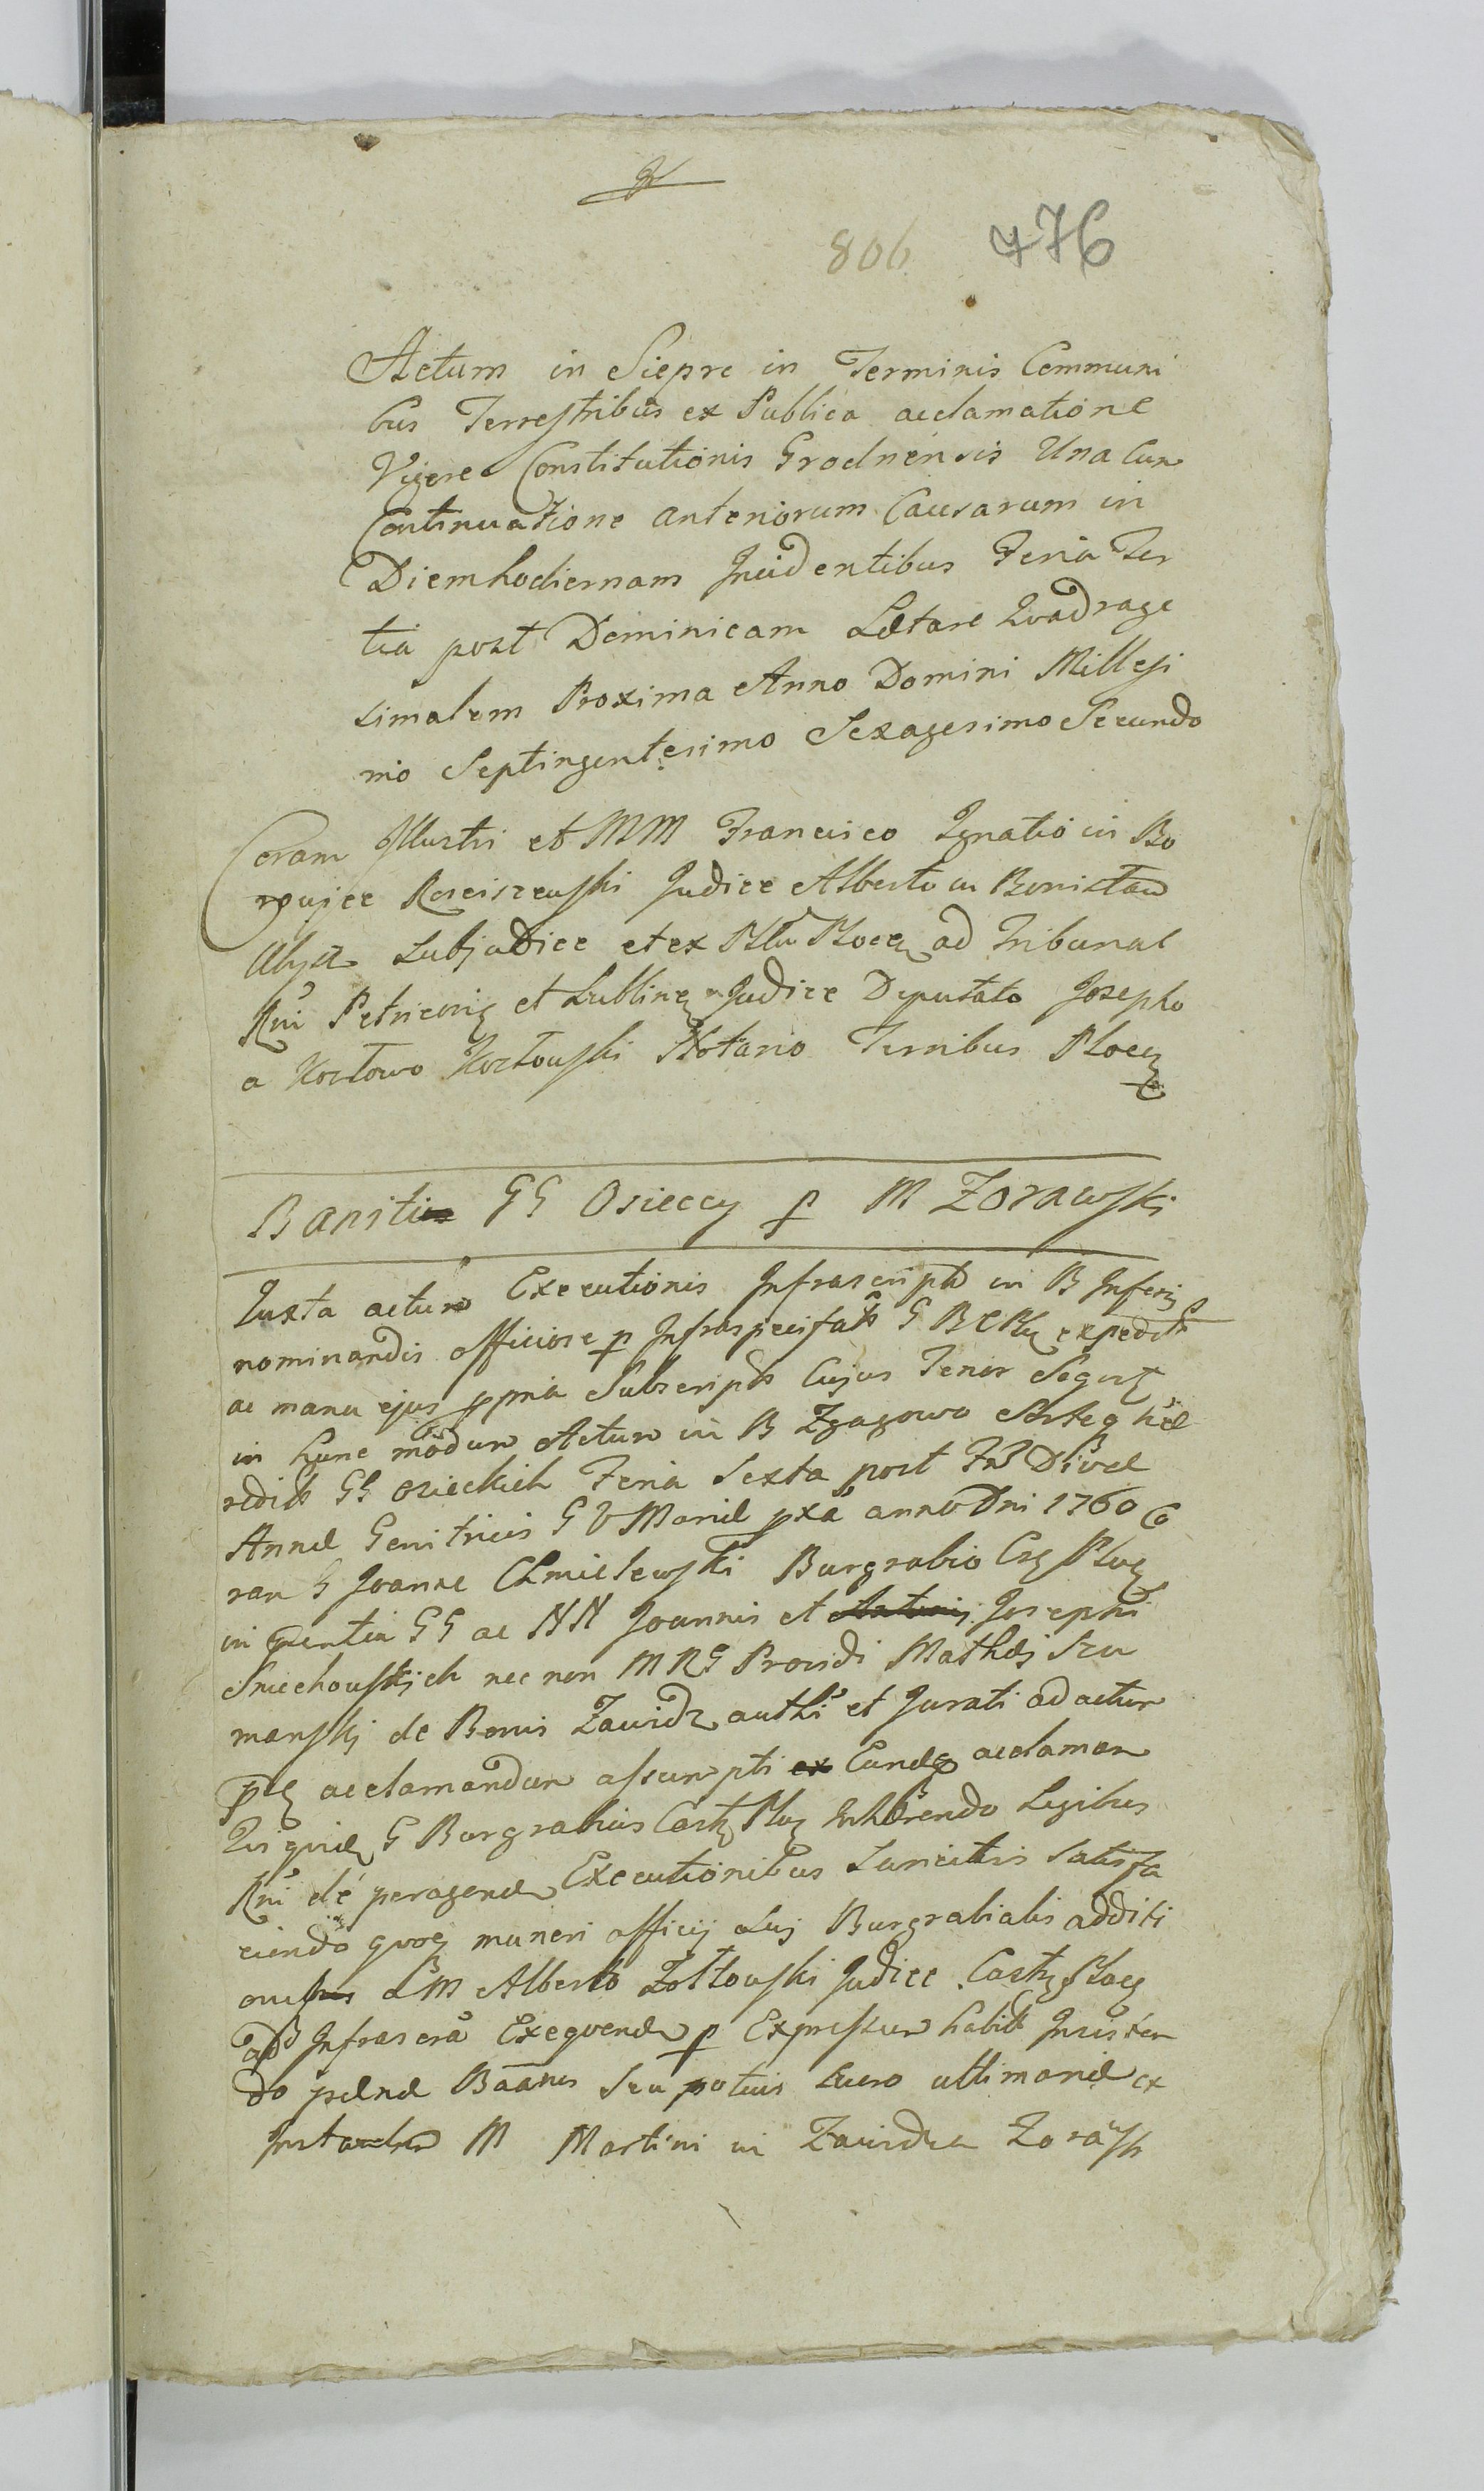 806 776
Actum in Sieprc in Terminis Communi
bus Terrestribus ex Publica acclamatione
Vigore Constitutionis Grodnensis Una Cum
Continuatione anteriorum Causarum in
Diem hodiernam Incidentibus Feria Ter
tia post Dominicam Lætare Quadrage
simalem Proxima Anno Domini Millesi
mo Septingentesimo Sexagesimo Secundo
Coram Illustri et MM Francisco Ignatio in Bo
Rosciszewski Judice Alberto in
Subjudice et ex Ploce ad Tribunal
Rni Petricovi et Lublin Judice Deputato Josepho
a Kozłowo Kozłowski Notario Terribus Ploce
Banitio GG Osieccy p M Zorawski
Iuxta actum Executionis Infrascript in B Inferi
nominandis officiose p Infraspecifat G expedit
ac manu ejus ppria Subscript Cujus Tenor Seqvt
in hunc modum Actum in B Zgagowo hæ
redit GG Osieckich Feria Sexta post Divæ
Annæ Genitricis G V Mariæ pxa anno Dni 1760 Co
ram G Joanne Chmielewski Burgrabio Ploc
in pæntia GG ac NN Joannis et Antonij Josephi
Sniechowskich nec non MRG Providi Mathæj Szu
manskj de Bonis Zawidz authi et Jurati ad actum
acclamandum assumpti ex Eand acclaman
Qui quid G Burgrabius Castr Ploc Inhærendo Legibus
Rni de peragend Executionibus Sancitis Satisfa
ciendo qvoq muneri officij sui Burgrabialis additi
LM Alberto Zołtowski Judice Castr Ploc
ad Infrascra Exeqvend p Expressum habit Insisten
do pænæ Baanis Seu potius ultimariæ ex
M Martini in Zawidza Zoraws